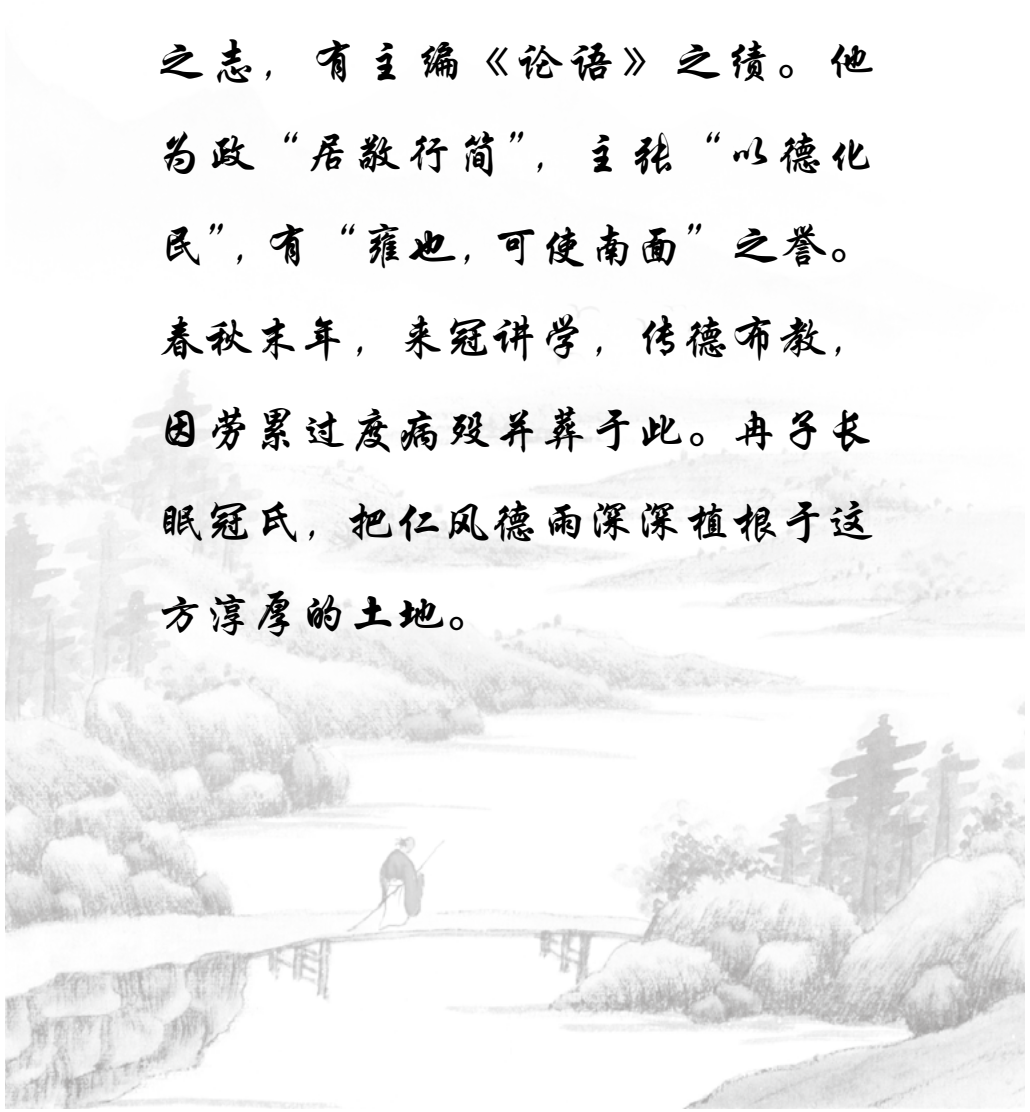 之志，有主编《论语》之绩。他
为政“居敬行简”，主张“以德化
民”，有“雍也，可使南面”之誉。
春秋末年，来冠讲学，传德布教，
因劳累过度病殁并葬于此。冉子长
眠冠氏，把仁风德雨深深植根于这
方淳厚的土地。